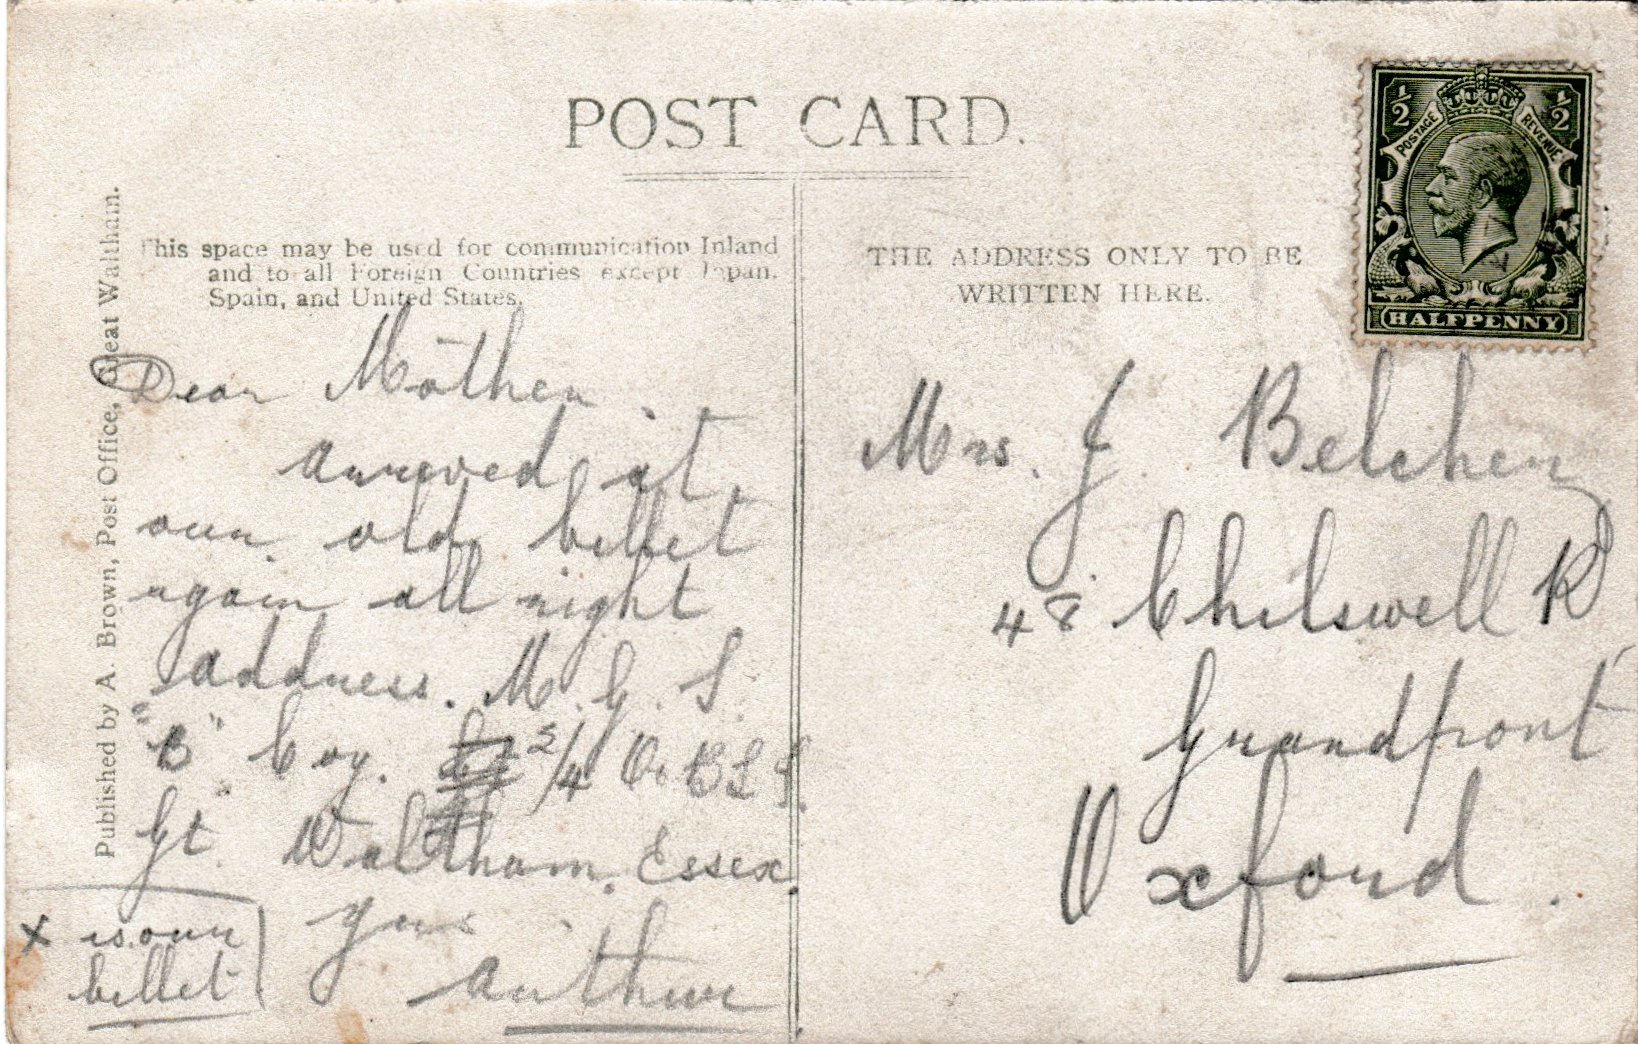 POST CARD.
Published by A. Brown, Post Office, Great Waltham.
This space may be used for communication Inland
and to all Foreign Countries except Japan,
Spain, and United States.
Dear Mother.
arrived at
our old billet
again all right
address. M. G. S.
"B" Coy. 2/4 Ox BLI.
Gt. Waltham. Essex.
yrs
Arthur
x is our
billet
THE ADDRESS ONLY TO BE
WRITTEN HERE.
½ POSTAGE REVENUE ½
HALFPENNY
Mrs. J. Belcher
48 Chilswell R
Grandpont
Oxford.